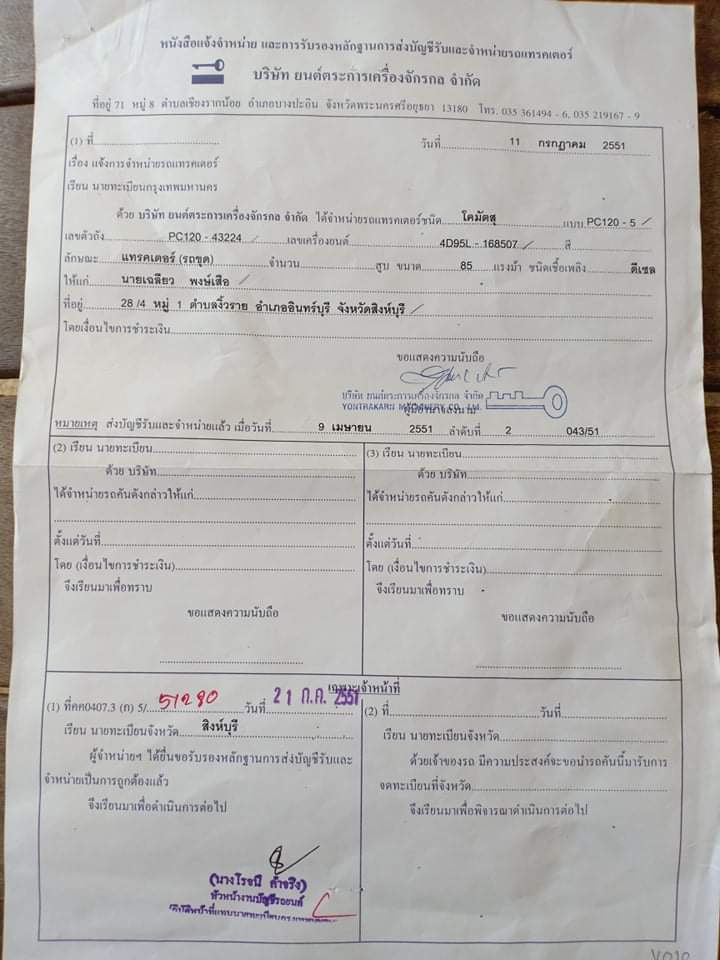 หนังสือแจ้งจำหน่าย และการรับรองหลักฐานการส่งบัญชีรับและจำหน่ายรถแทรคเตอร์
บริษัท ยนต์ตระการเครื่องจักรกล จำกัด
ที่อยู่ 71 หมู่ 8 ตำบลเชียงรากน้อย อำเภอบางปะอิน จังหวัดพระนครศรีอยุธยา 13180 โทร. 035 361494 - 6, 035 219167 - 9
(1) ที่ วันที่ 11 กรกฎาคม 2551
เรื่อง แจ้งการจำหน่ายรถแทรคเตอร์
เรียน นายทะเบียนกรุงเทพมหานคร
ด้วย บริษัท ยนต์ตระการเครื่องจักรกล จำกัด ได้จำหน่ายรถแทรคเตอร์ชนิด โคมัตสุ แบบ PC120 - 5
เลขตัวถัง PC120 - 43224 เลขเครื่องยนต์ 4D95L - 168507 สี
ลักษณะ แทรคเตอร์ (รถขุด) จำนวน สูบ ขนาด 85 แรงม้า ชนิดเชื้อเพลิง ดีเซล
ให้แก่ นายเฉลียว พงษ์เสือ
ที่อยู่ 28 /4 หมู่ 1 ตำบลงิ้วราย อำเภออินทร์บุรี จังหวัดสิงห์บุรี
โดยเงื่อนไขการชำระเงิน
ขอแสดงความนับถือ
บริษัท ยนต์ตระการเครื่องจักรกล จำกัด
YONTRAKARN MACHINERY CO., LTD.
ผู้มีอำนาจลงนาม
หมายเหตุ ส่งบัญชีรับและจำหน่ายแล้ว เมื่อวันที่ 9 เมษายน 2551 ลำดับที่ 2 043/51
(2) เรียน นายทะเบียน
ด้วย บริษัท
ได้จำหน่ายรถคันดังกล่าวให้แก่
ตั้งแต่วันที่
โดย (เงื่อนไขการชำระเงิน)
จึงเรียนมาเพื่อทราบ
ขอแสดงความนับถือ
(3) เรียน นายทะเบียน
ด้วย บริษัท
ได้จำหน่ายรถคันดังกล่าวให้แก่
ตั้งแต่วันที่
โดย (เงื่อนไขการชำระเงิน)
จึงเรียนมาเพื่อทราบ
ขอแสดงความนับถือ
เฉพาะเจ้าหน้าที่
(1) ที่คค0407.3 (ก) 5/ 51280 วันที่ 21 ก.ค. 2551
เรียน นายทะเบียนจังหวัด สิงห์บุรี
ผู้จำหน่ายฯ ได้ยื่นขอรับรองหลักฐานการส่งบัญชีรับและ
จำหน่ายเป็นการถูกต้องแล้ว
จึงเรียนมาเพื่อดำเนินการต่อไป
(นางโรจนี ดำจริง)
หัวหน้างานบัญชีรถยนต์
(2) ที่ วันที่
เรียน นายทะเบียนจังหวัด
ด้วยเจ้าของรถ มีความประสงค์จะขอนำรถคันนี้มารับการ
จดทะเบียนที่จังหวัด
จึงเรียนมาเพื่อพิจารณาดำเนินการต่อไป